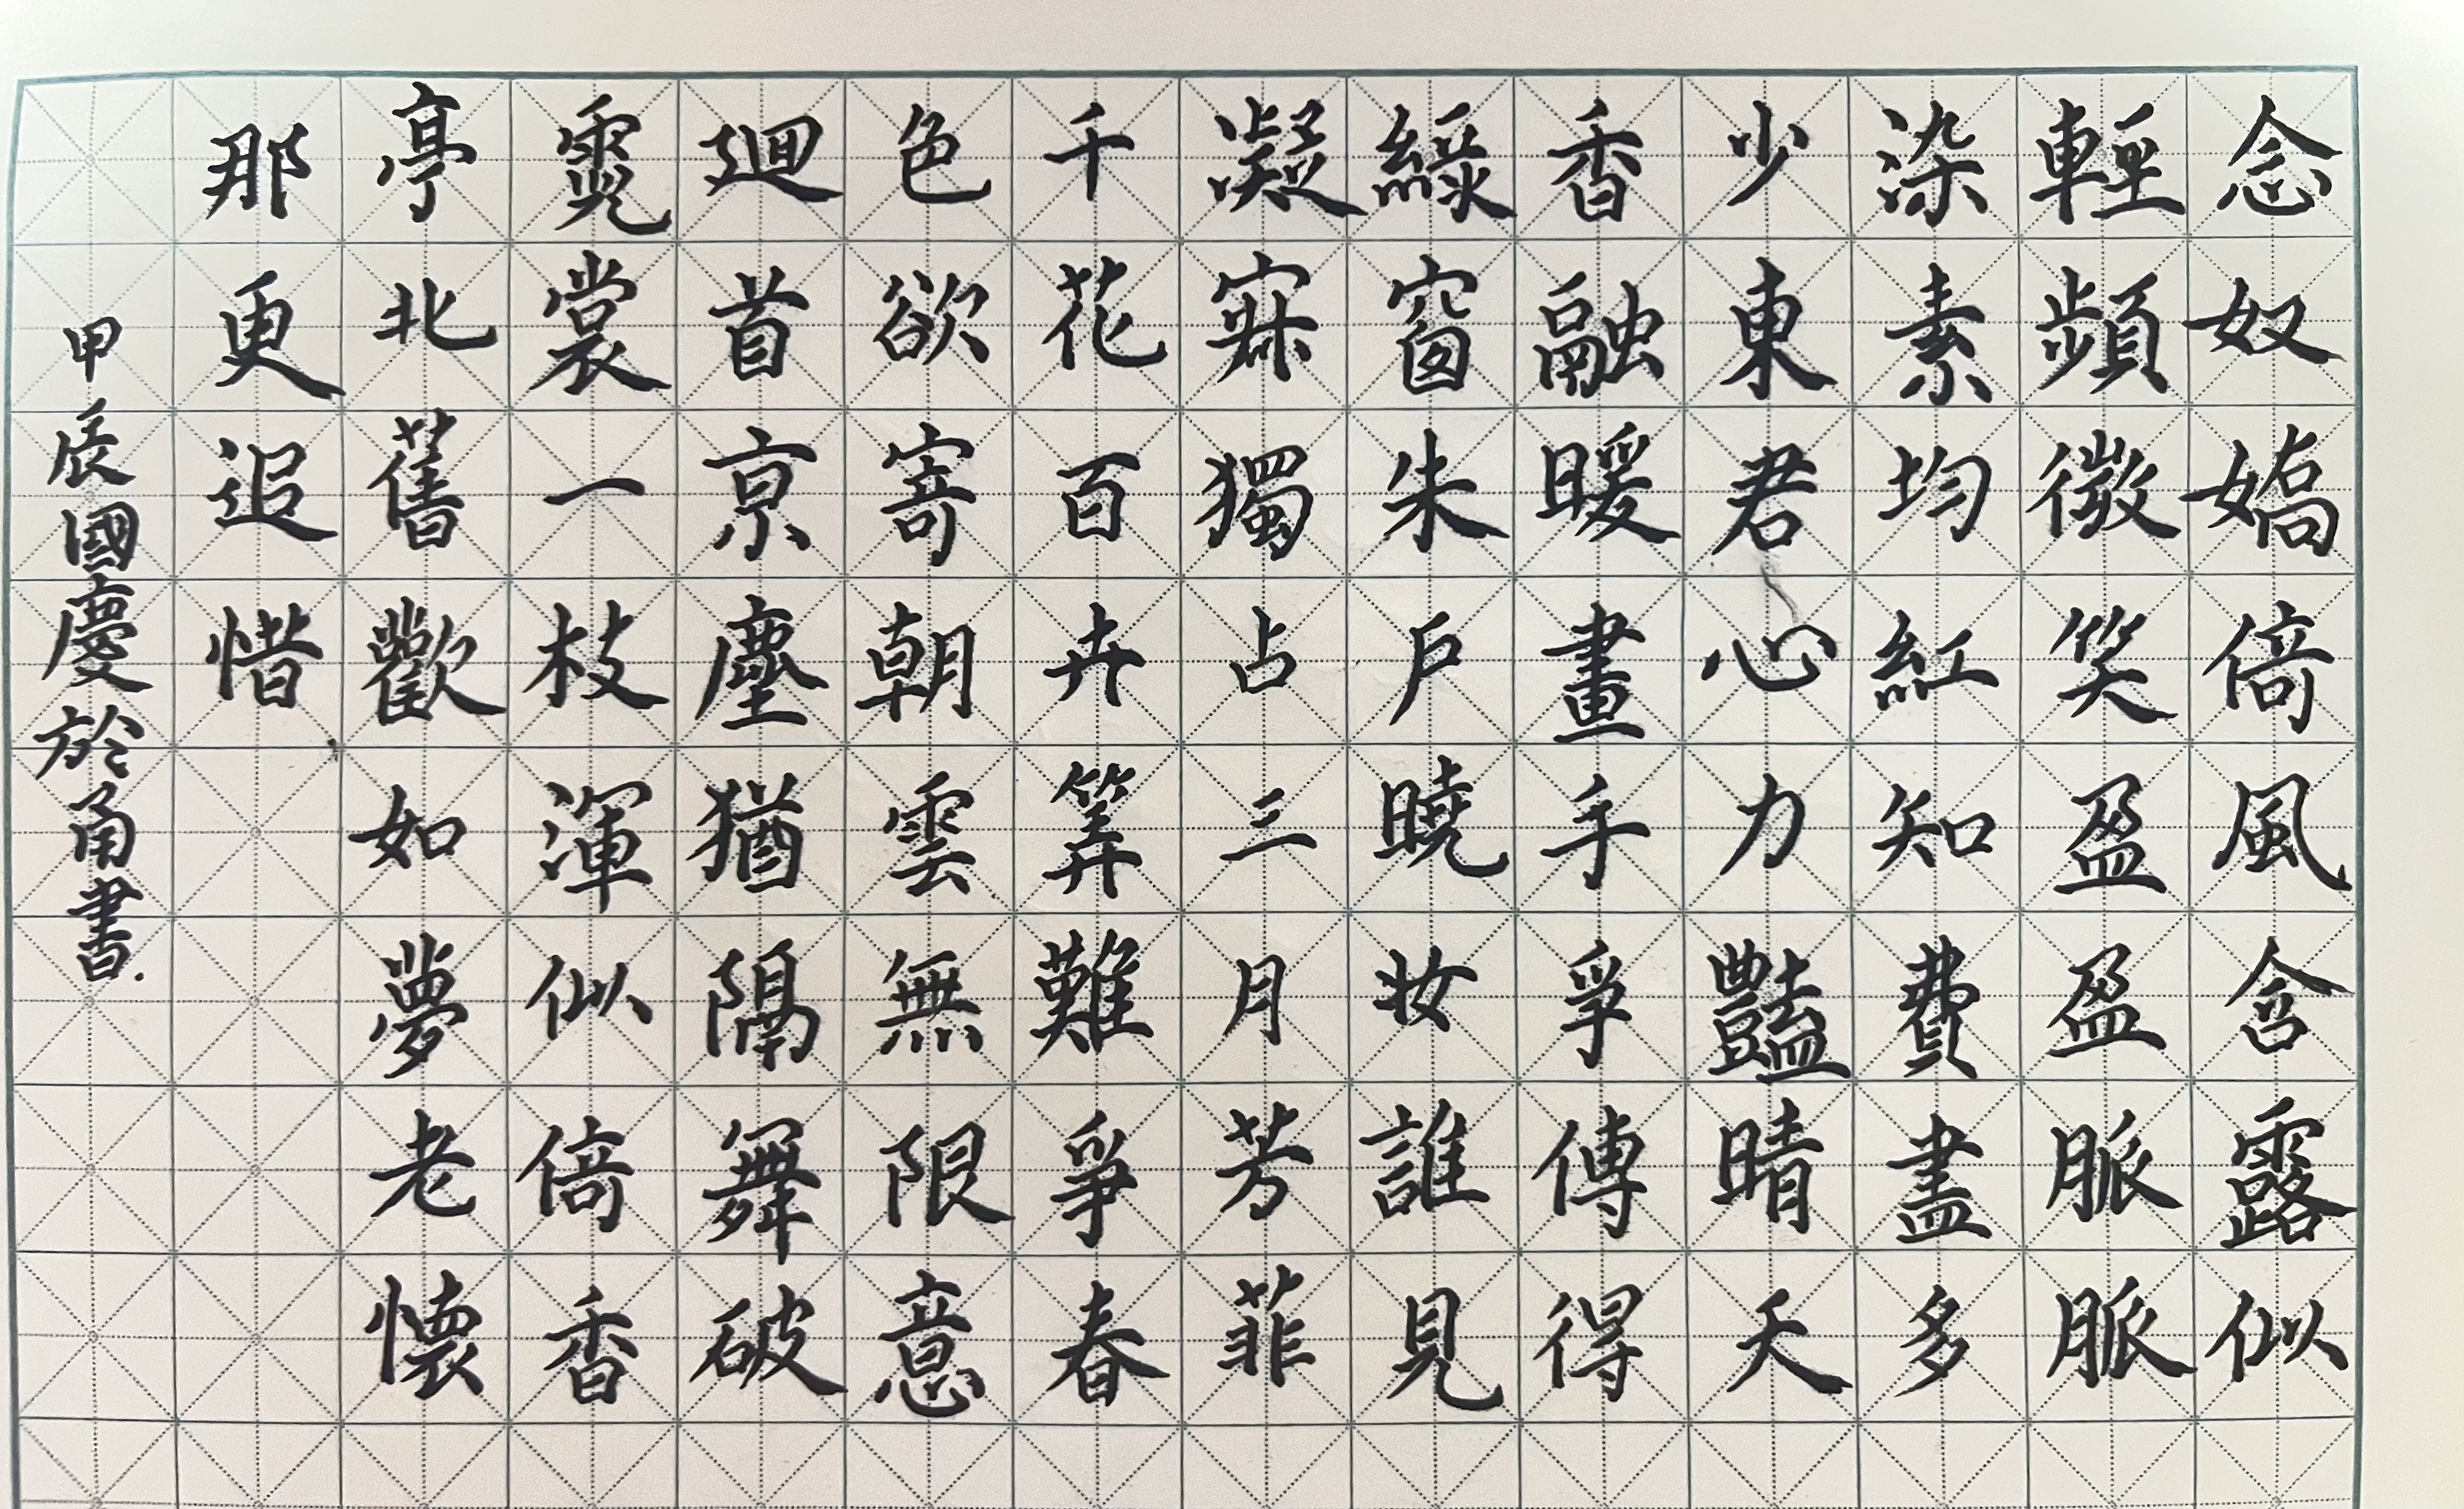 念奴嬌倚風含露似
輕顰微笑盈盈脈脈
染素勻紅知費盡多
少東君心力豔晴天
香融暖晝手爭傳得
綠窗朱戶曉妝誰見
凝寐獨占三月芳菲
千花百卉算難爭春
色欲寄朝雲無限意
迴首京塵猶隔舞破
霓裳一枝渾似倚香
亭北舊歡如夢老懷
那更追惜
甲辰國慶於甬書